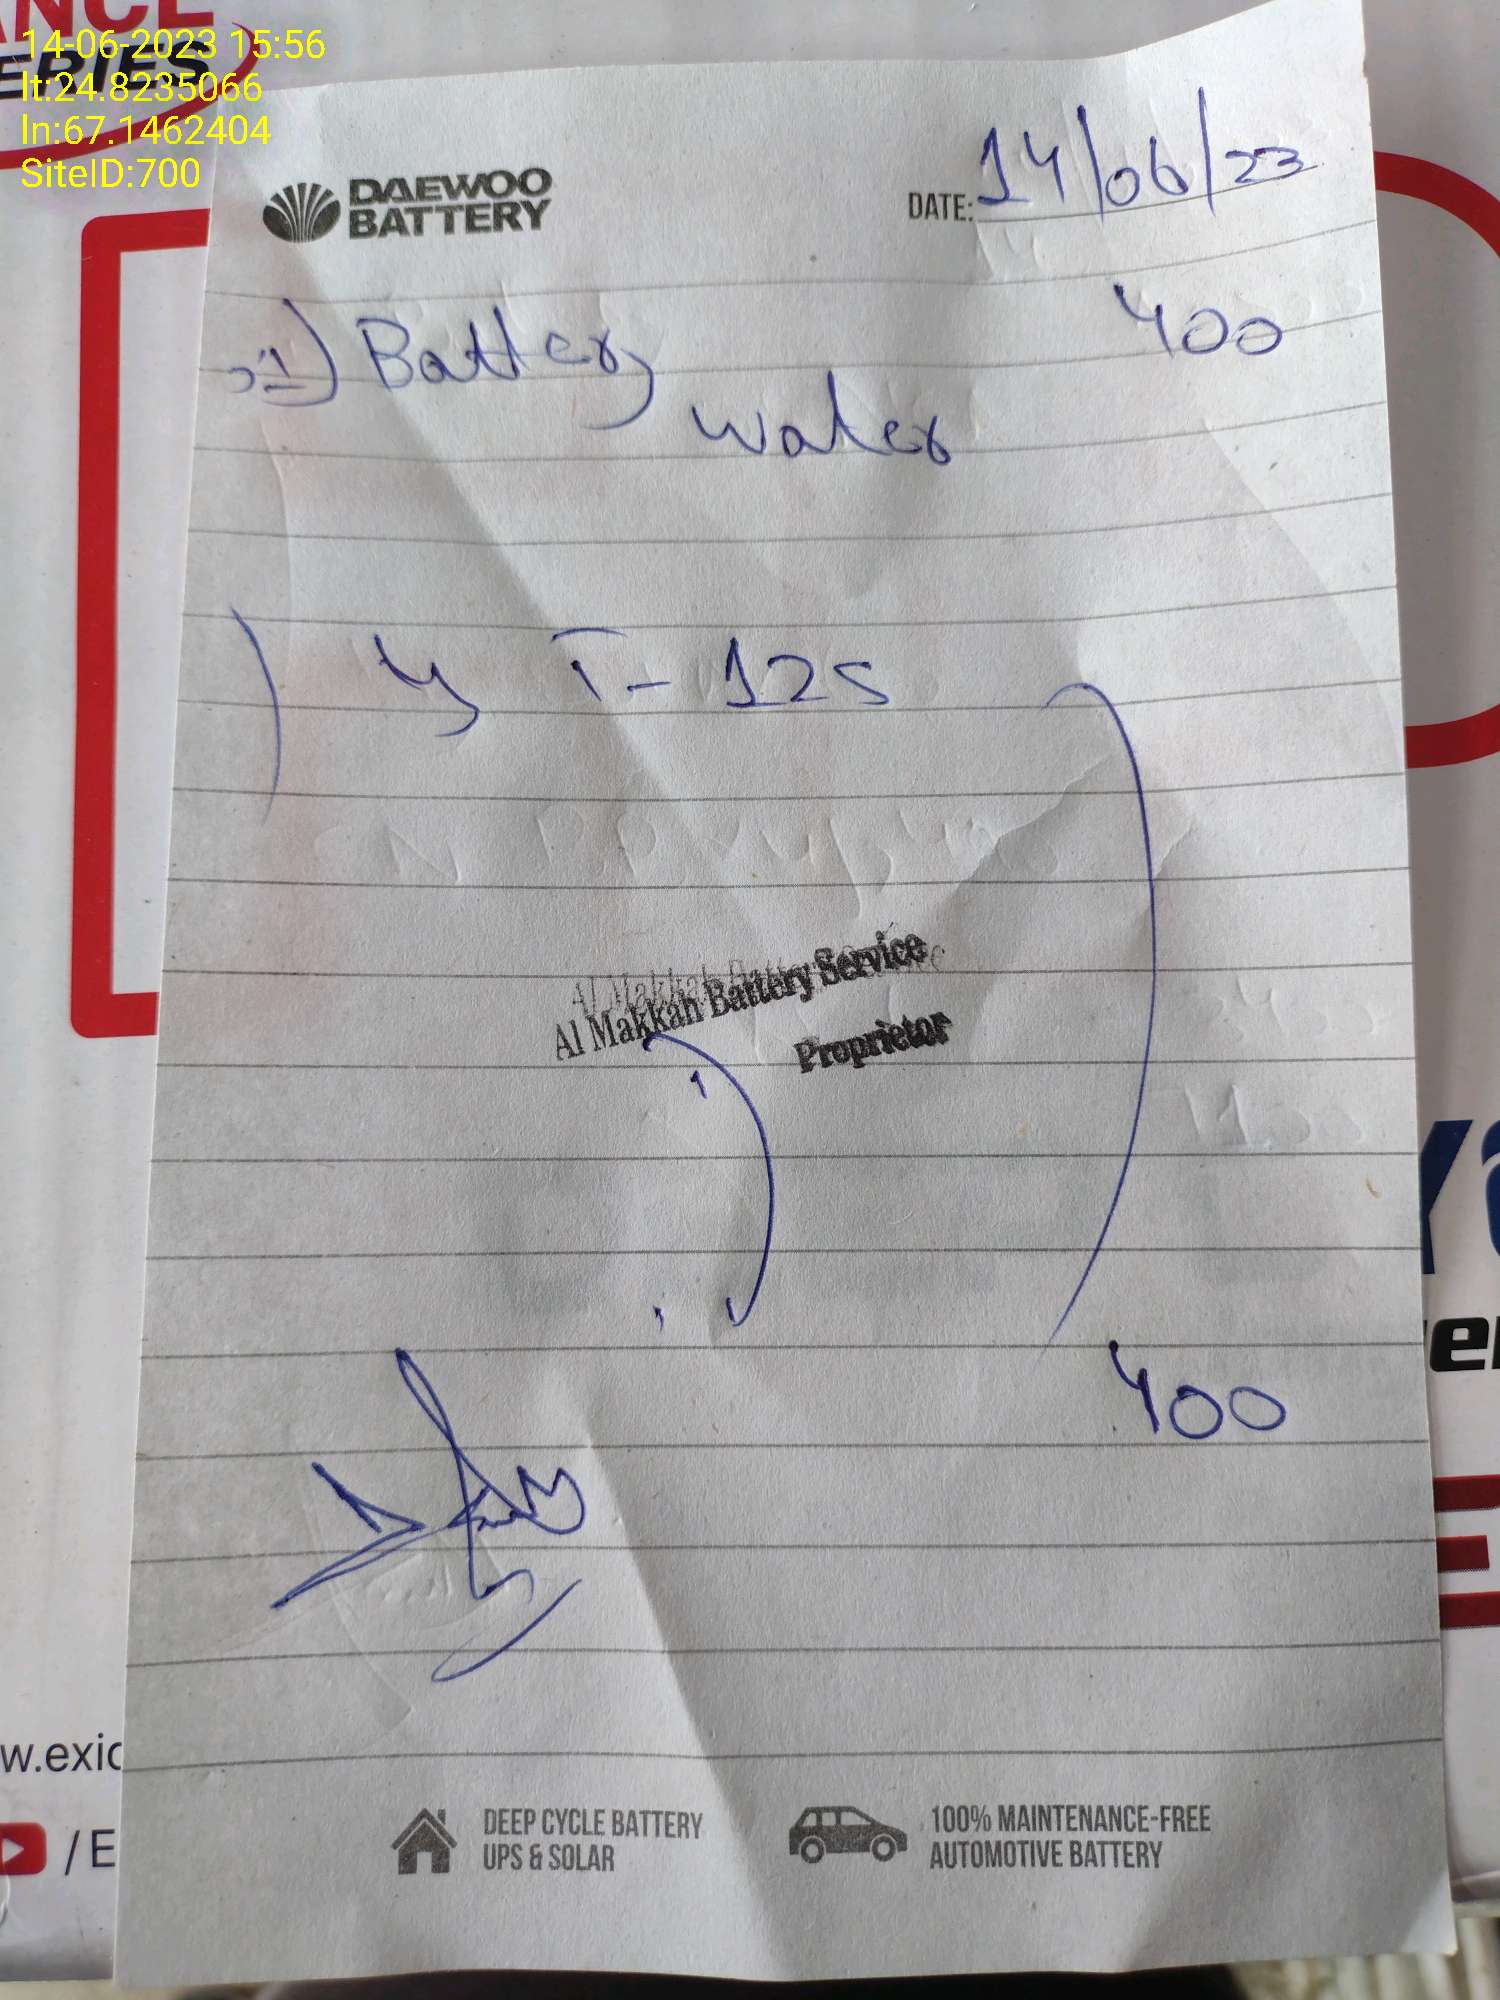 14-06-2023 15:56
lt:24.8235066
ln:67.1462404
SiteID:700
ERIES
DAEWOO
BATTERY
DATE: 14/06/23
Battery 400
water
T-125
Al Makkah Battery Service
Proprietor
400
w.exic
/E
DEEP CYCLE BATTERY
UPS & SOLAR
100% MAINTENANCE-FREE
AUTOMOTIVE BATTERY